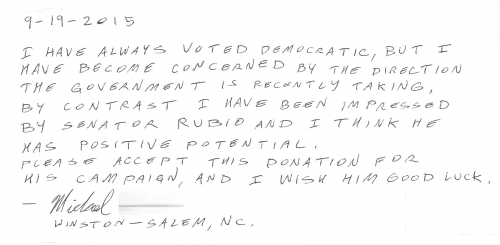 9-19-2015
I HAVE ALWAYS VOTED DEMOCRATIC, BUT I
HAVE BECOME CONCERNED BY THE DIRECTION
THE GOVERNMENT IS RECENTLY TAKING,
BY CONTRAST I HAVE BEEN IMPRESSED
BY SENATOR RUBIO AND I THINK HE
HAS POSITIVE POTENTIAL.
PLEASE ACCEPT THIS DONATION FOR
HIS CAMPAIGN, AND I WISH HIM GOOD LUCK.
— Michael
WINSTON-SALEM, NC.